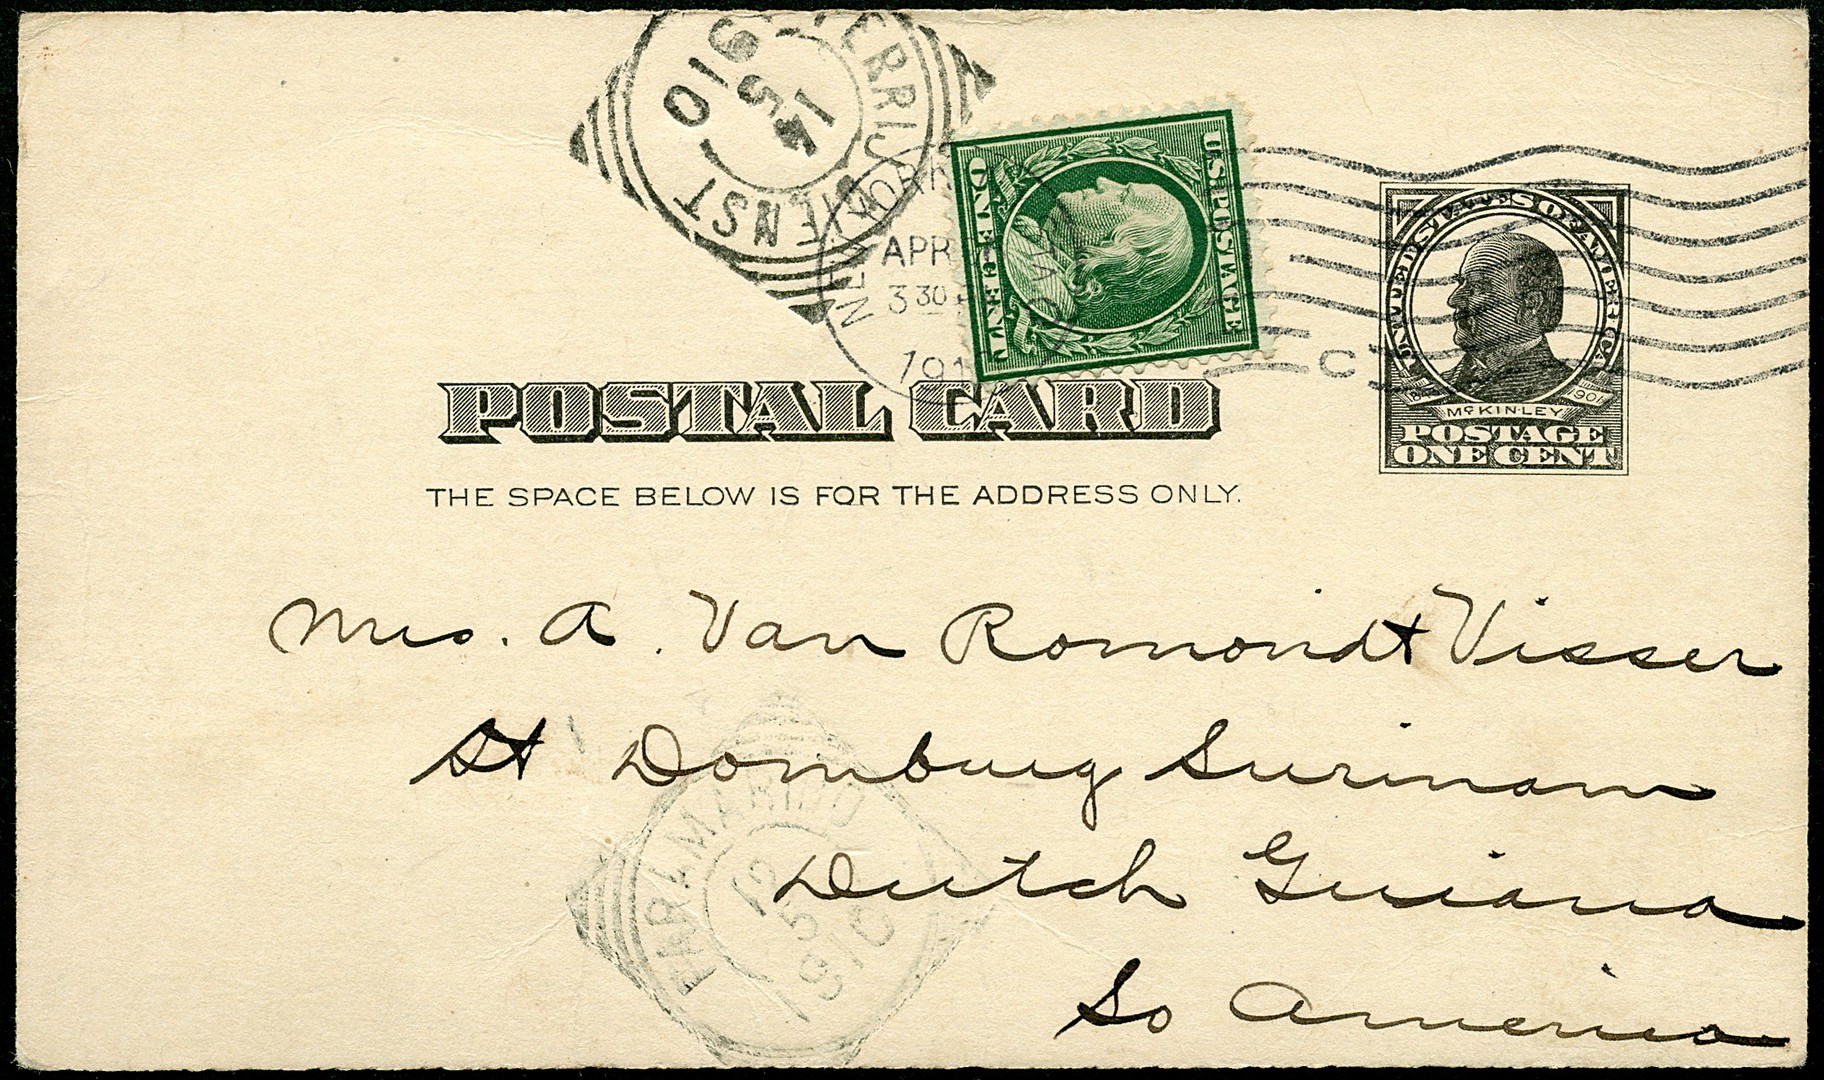 VEERRIJ
DIENST
14
5
910
NEW YORK
APR
3 30
191
STA
U.S. POSTAGE
ONE CENT
UNITED STATES OF AMERICA
1843
1901
McKINLEY
POSTAGE
ONE CENT
POSTAL CARD
THE SPACE BELOW IS FOR THE ADDRESS ONLY.
Mrs. A. Van Romondt Visser
St Domburg Surinam
Dutch Guiana
So America
PARAMARIBO
12
5
1910